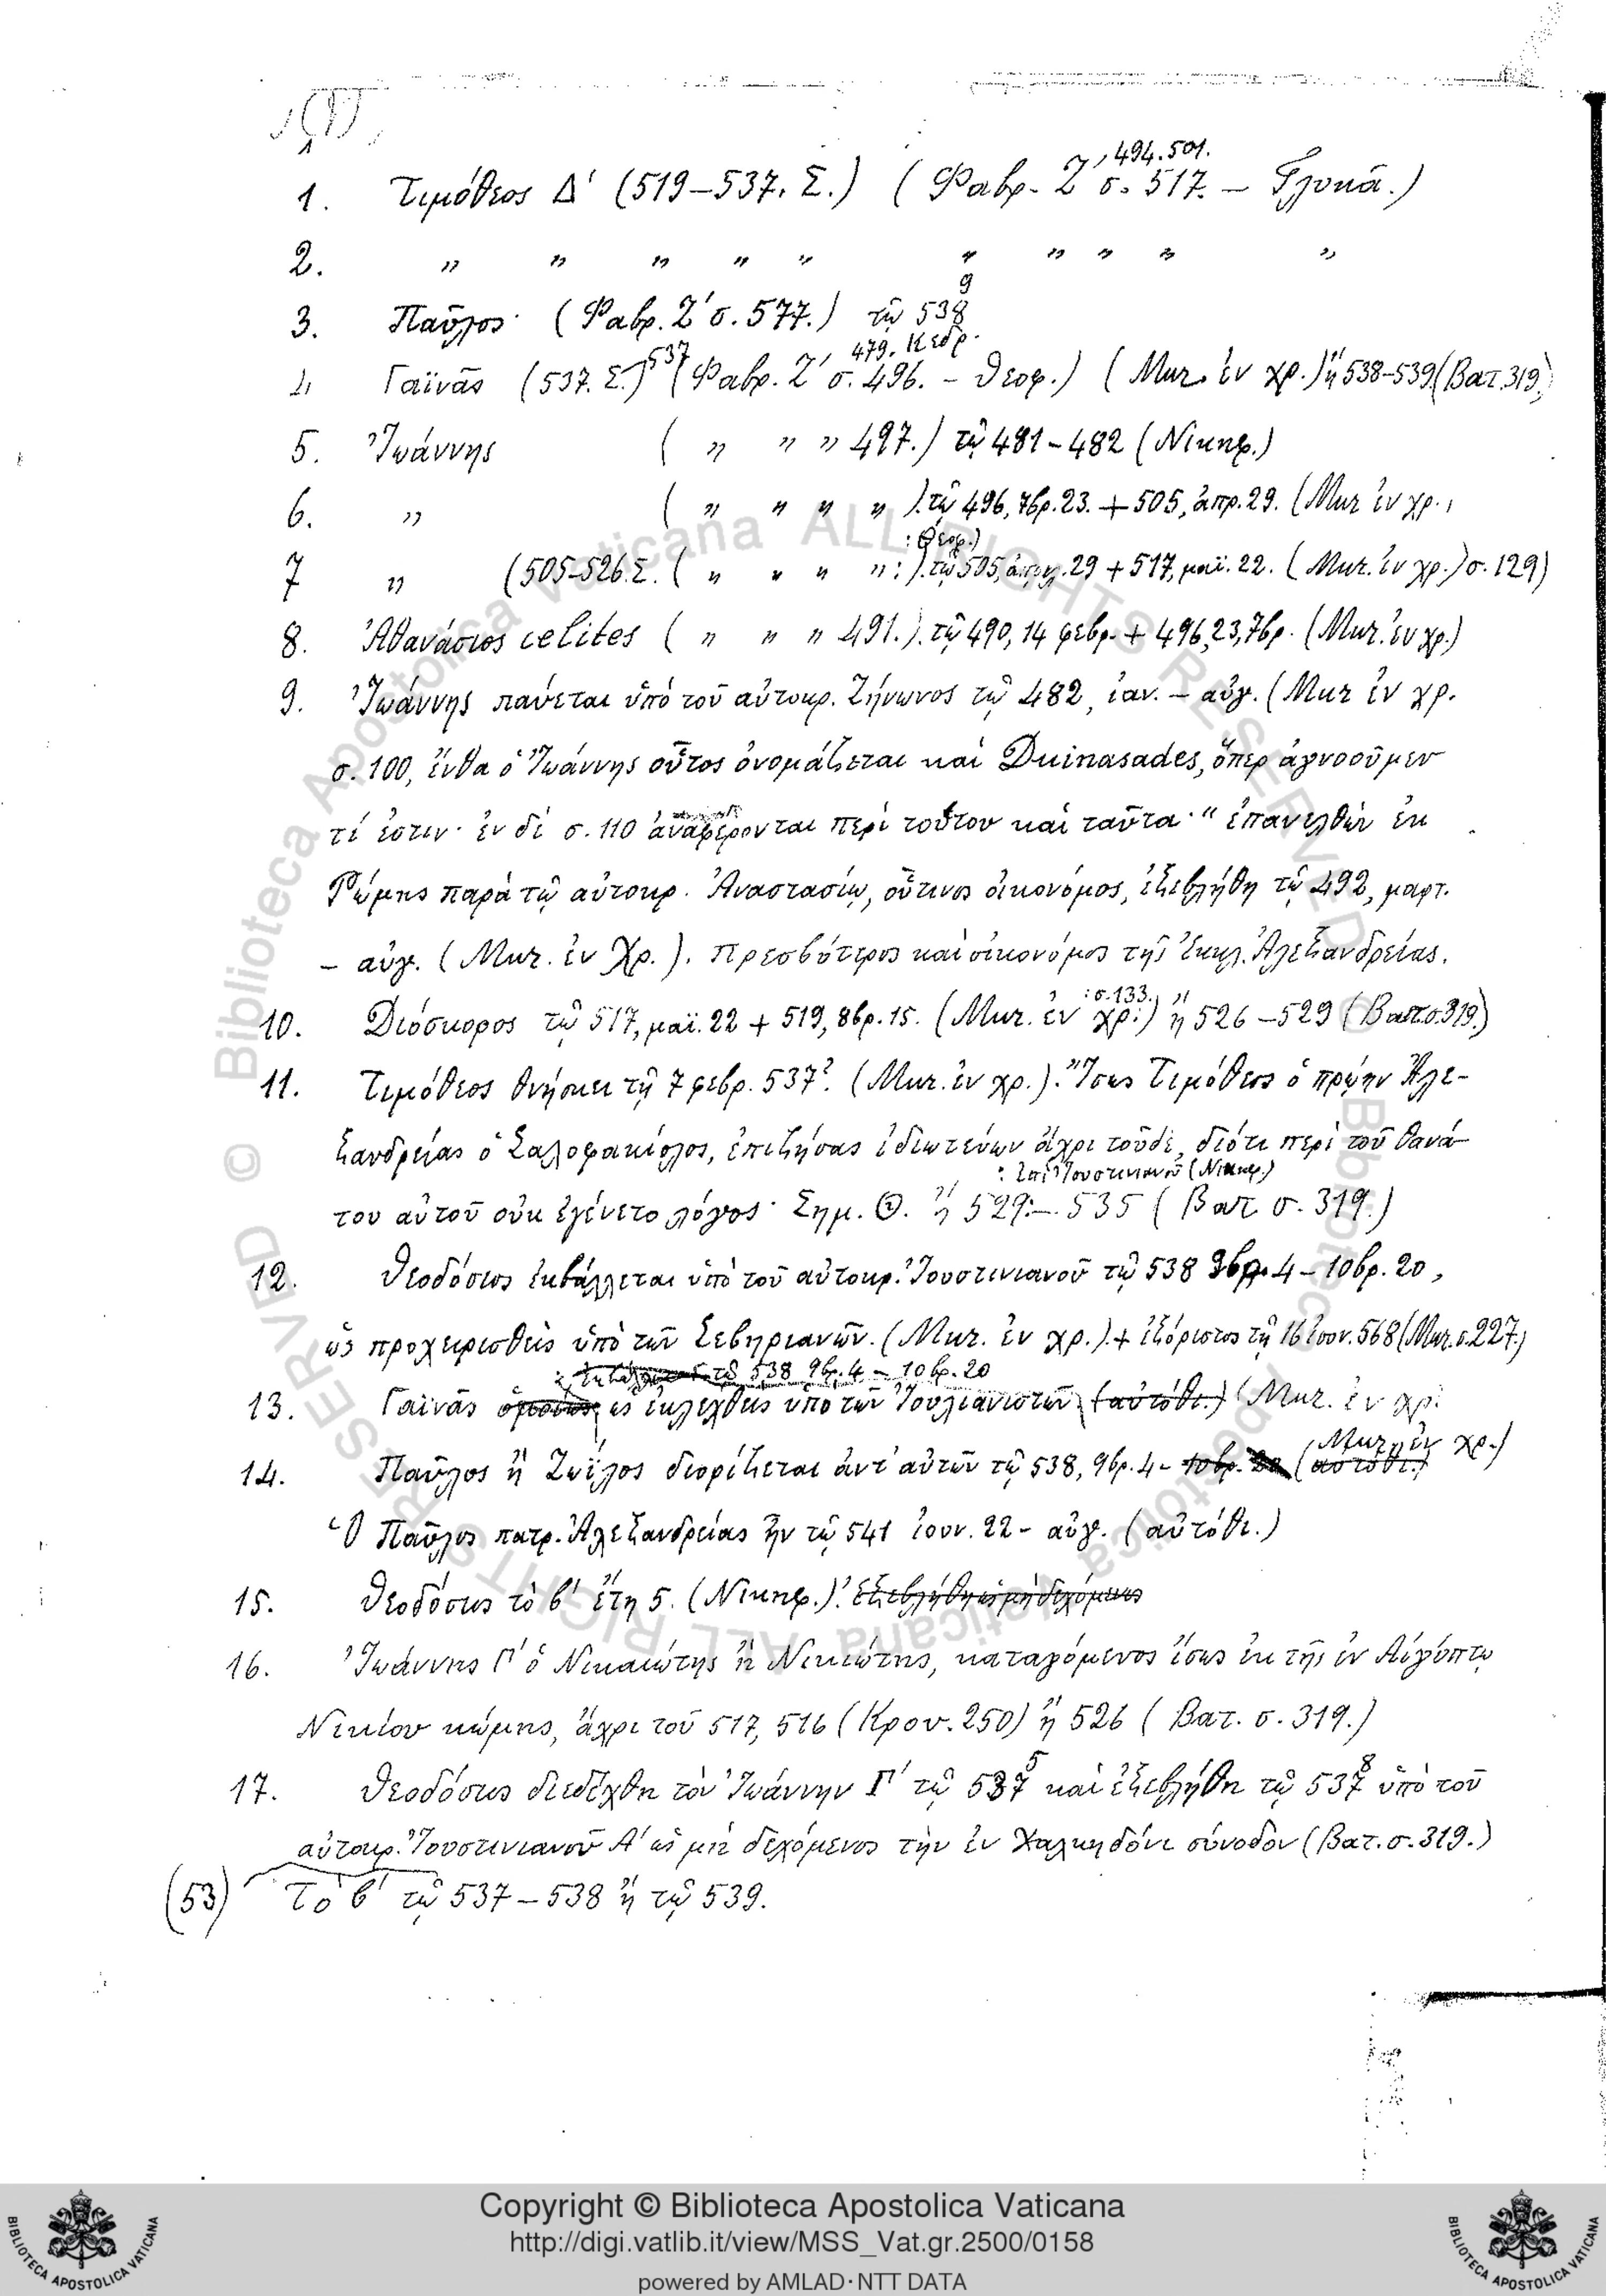 1. Τιμόθεος Δ' (519–537. Σ.) (Φαβρ. Ζ' σ. 517. 494. 501. – Γλυκᾶ.)
2. " " " " " " " " " "
3. Παῦλος (Φαβρ. Ζ' σ. 577.) τῷ 538 9
4 Γαϊνᾶς (537. Σ.) 537 (Φαβρ. Ζ' σ. 496. 479. Κεδρ. – Θεοφ.) (Μυζ. ἐν χρ.) ἢ 538–539 (Βατ. 319.)
5. Ἰωάννης ( " " " 497.) τῷ 481–482 (Νικηφ.)
6. " ( " " " " ). τῷ 496, 7βρ. 23. + 505, ἀπρ. 29. (Μυζ ἐν χρ.,
7 " (505–526. Σ. ( " " " " : Θεοφ.) :). τῷ 505, ἀπρ. 29 + 517, μαΐ. 22. (Μυζ. ἐν χρ.) σ. 129)
8. Ἀθανάσιος celites ( " " " 491.). τῷ 490, 14 φεβρ. + 496, 23, 7βρ. (Μυζ. ἐν χρ.)
9. Ἰωάννης παύεται ὑπὸ τοῦ αὐτοκρ. Ζήνωνος τῷ 482, ἰαν. – αὐγ. (Μυζ ἐν χρ.
σ. 100, ἔνθα ὁ Ἰωάννης οὗτος ὀνομάζεται καὶ Duinasades, ὅπερ ἀγνοοῦμεν
τί ἐστιν· ἐν δὲ σ. 110 ἀναφέρονται περὶ τούτου καὶ ταῦτα· " ἐπανελθὼν ἐκ
Ῥώμης παρὰ τῷ αὐτοκρ. Ἀναστασίῳ, οὗτινος οἰκονόμος, ἐξεβλήθη τῷ 492, μαρτ.
– αὐγ. (Μυζ. ἐν Χρ.). Πρεσβύτερος καὶ οἰκονόμος τῆς Ἐκκλ. Ἀλεξανδρείας.
10. Διόσκορος τῷ 517, μαΐ. 22 + 519, 8βρ. 15. (Μυζ. ἐν χρ: :σ. 133.) ἢ 526–529 (Βατ. σ. 319.)
11. Τιμόθεος θνήσκει τῇ 7 φεβρ. 537? (Μυζ. ἐν χρ.). Ἴσως Τιμόθεος ὁ πρώην Ἀλε-
ξανδρείας ὁ Σαλοφακίολος, ἐπιζήσας ἰδιωτεύων ἄχρι τοῦδε, διότι περὶ τοῦ θανά-
: ἐπὶ Ἰουστινιανοῦ (Νικηφ.)
του αὐτοῦ οὐκ ἐγένετο λόγος· Σημ. Θ. ἢ 529:–535 (Βατ. σ. 319.)
12. Θεοδόσιος ἐκβάλλεται ὑπὸ τοῦ αὐτοκρ. Ἰουστινιανοῦ τῷ 538 9βρ. 4–10βρ. 20,
ὡς προχειρισθεὶς ὑπὸ τῶν Σεβηριανῶν. (Μυζ. ἐν χρ.). + ἐξόριστος τῇ 16 ἰουν. 568 (Μυζ. σ. 227.)
τῷ 538 9βρ. 4 – 10βρ. 20
13. Γαϊνᾶς ὁμοίως ὡς ἐκλεχθεὶς ὑπὸ τῶν Ἰουλιανιστῶν (αὐτόθι.) (Μυζ. ἐν χρ:
14. Παῦλος ἢ Ζωΐλος διορίζεται ἀντ' αὐτῶν τῷ 538, 9βρ. 4 – 10βρ. 20 (αὐτόθι.) (Μυζ. ἐν χρ.)
Ὁ Παῦλος πατρ. Ἀλεξανδρείας ἦν τῷ 541 ἰουν. 22 – αὐγ. (αὐτόθι.)
15. Θεοδόσιος τὸ β' ἔτη 5. (Νικηφ.). ἐξεβλήθη ὡς μὴ δεχόμενος
16. Ἰωάννης Γ' ὁ Νικαιώτης ἢ Νικιώτης, καταγόμενος ἴσως ἐκ τῆς ἐν Αἰγύπτῳ
Νικίου κώμης, ἄχρι τοῦ 517, 516 (Κρον. 250) ἢ 526 (Βατ. σ. 319.)
17. Θεοδόσιος διεδέχθη τὸν Ἰωάννην Γ' τῷ 535 καὶ ἐξεβλήθη τῷ 538 ὑπὸ τοῦ
αὐτοκρ. Ἰουστινιανοῦ Α' ὡς μὴ δεχόμενος τὴν ἐν Χαλκηδόνι σύνοδον (Βατ. σ. 319.)
(53) Τὸ β' τῷ 537–538 ἢ τῷ 539.
© Biblioteca Apostolica Vaticana ALL RIGHTS RESERVED
Copyright © Biblioteca Apostolica Vaticana
http://digi.vatlib.it/view/MSS_Vat.gr.2500/0158
powered by AMLAD·NTT DATA
BIBLIOTECA APOSTOLICA VATICANA
BIBLIOTECA APOSTOLICA VATICANA